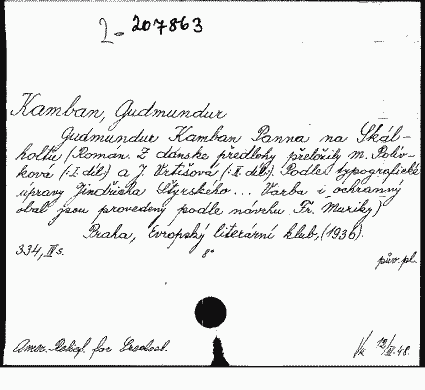 2-207863
Kamban, Gudmundur
Gudmundur Kamban Panna na Skál-
holtu (Román. Z dánské předlohy přeložily M. Polív-
ková (:I. díl:) a J. Vrtišová (:II. díl:). Podle typografické
úpravy Jindřicha Štyrského... Vazba i ochranný
obal jsou provedeny podle návrhu Fr. Muziky.)
Praha, Evropský literární klub, (1936).
334, II s. 8° pův. pl.
for Czechosl.